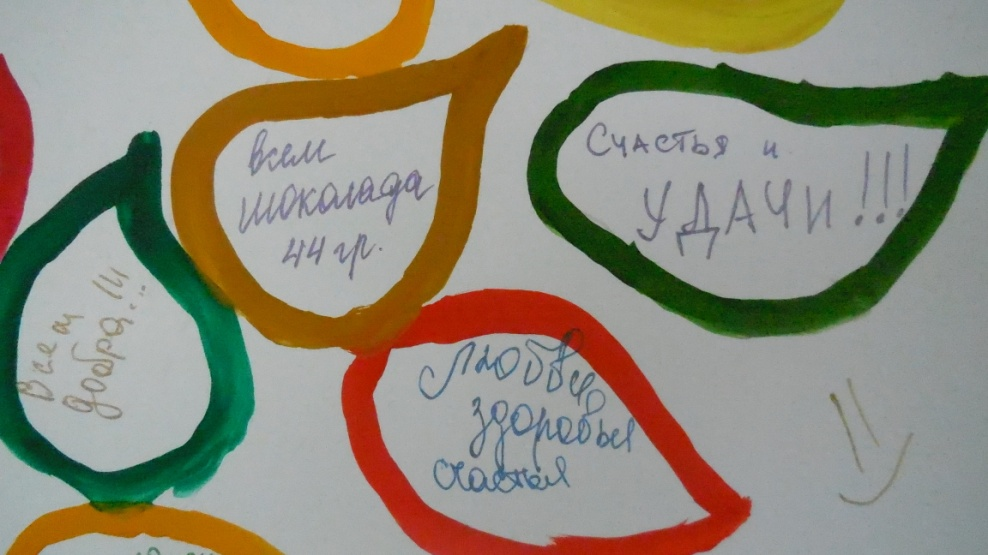 Всем
шоколада
44 гр.
Счастья и
УДАЧИ!!!
Всем
добра!!!
Любви,
здоровья
счастья